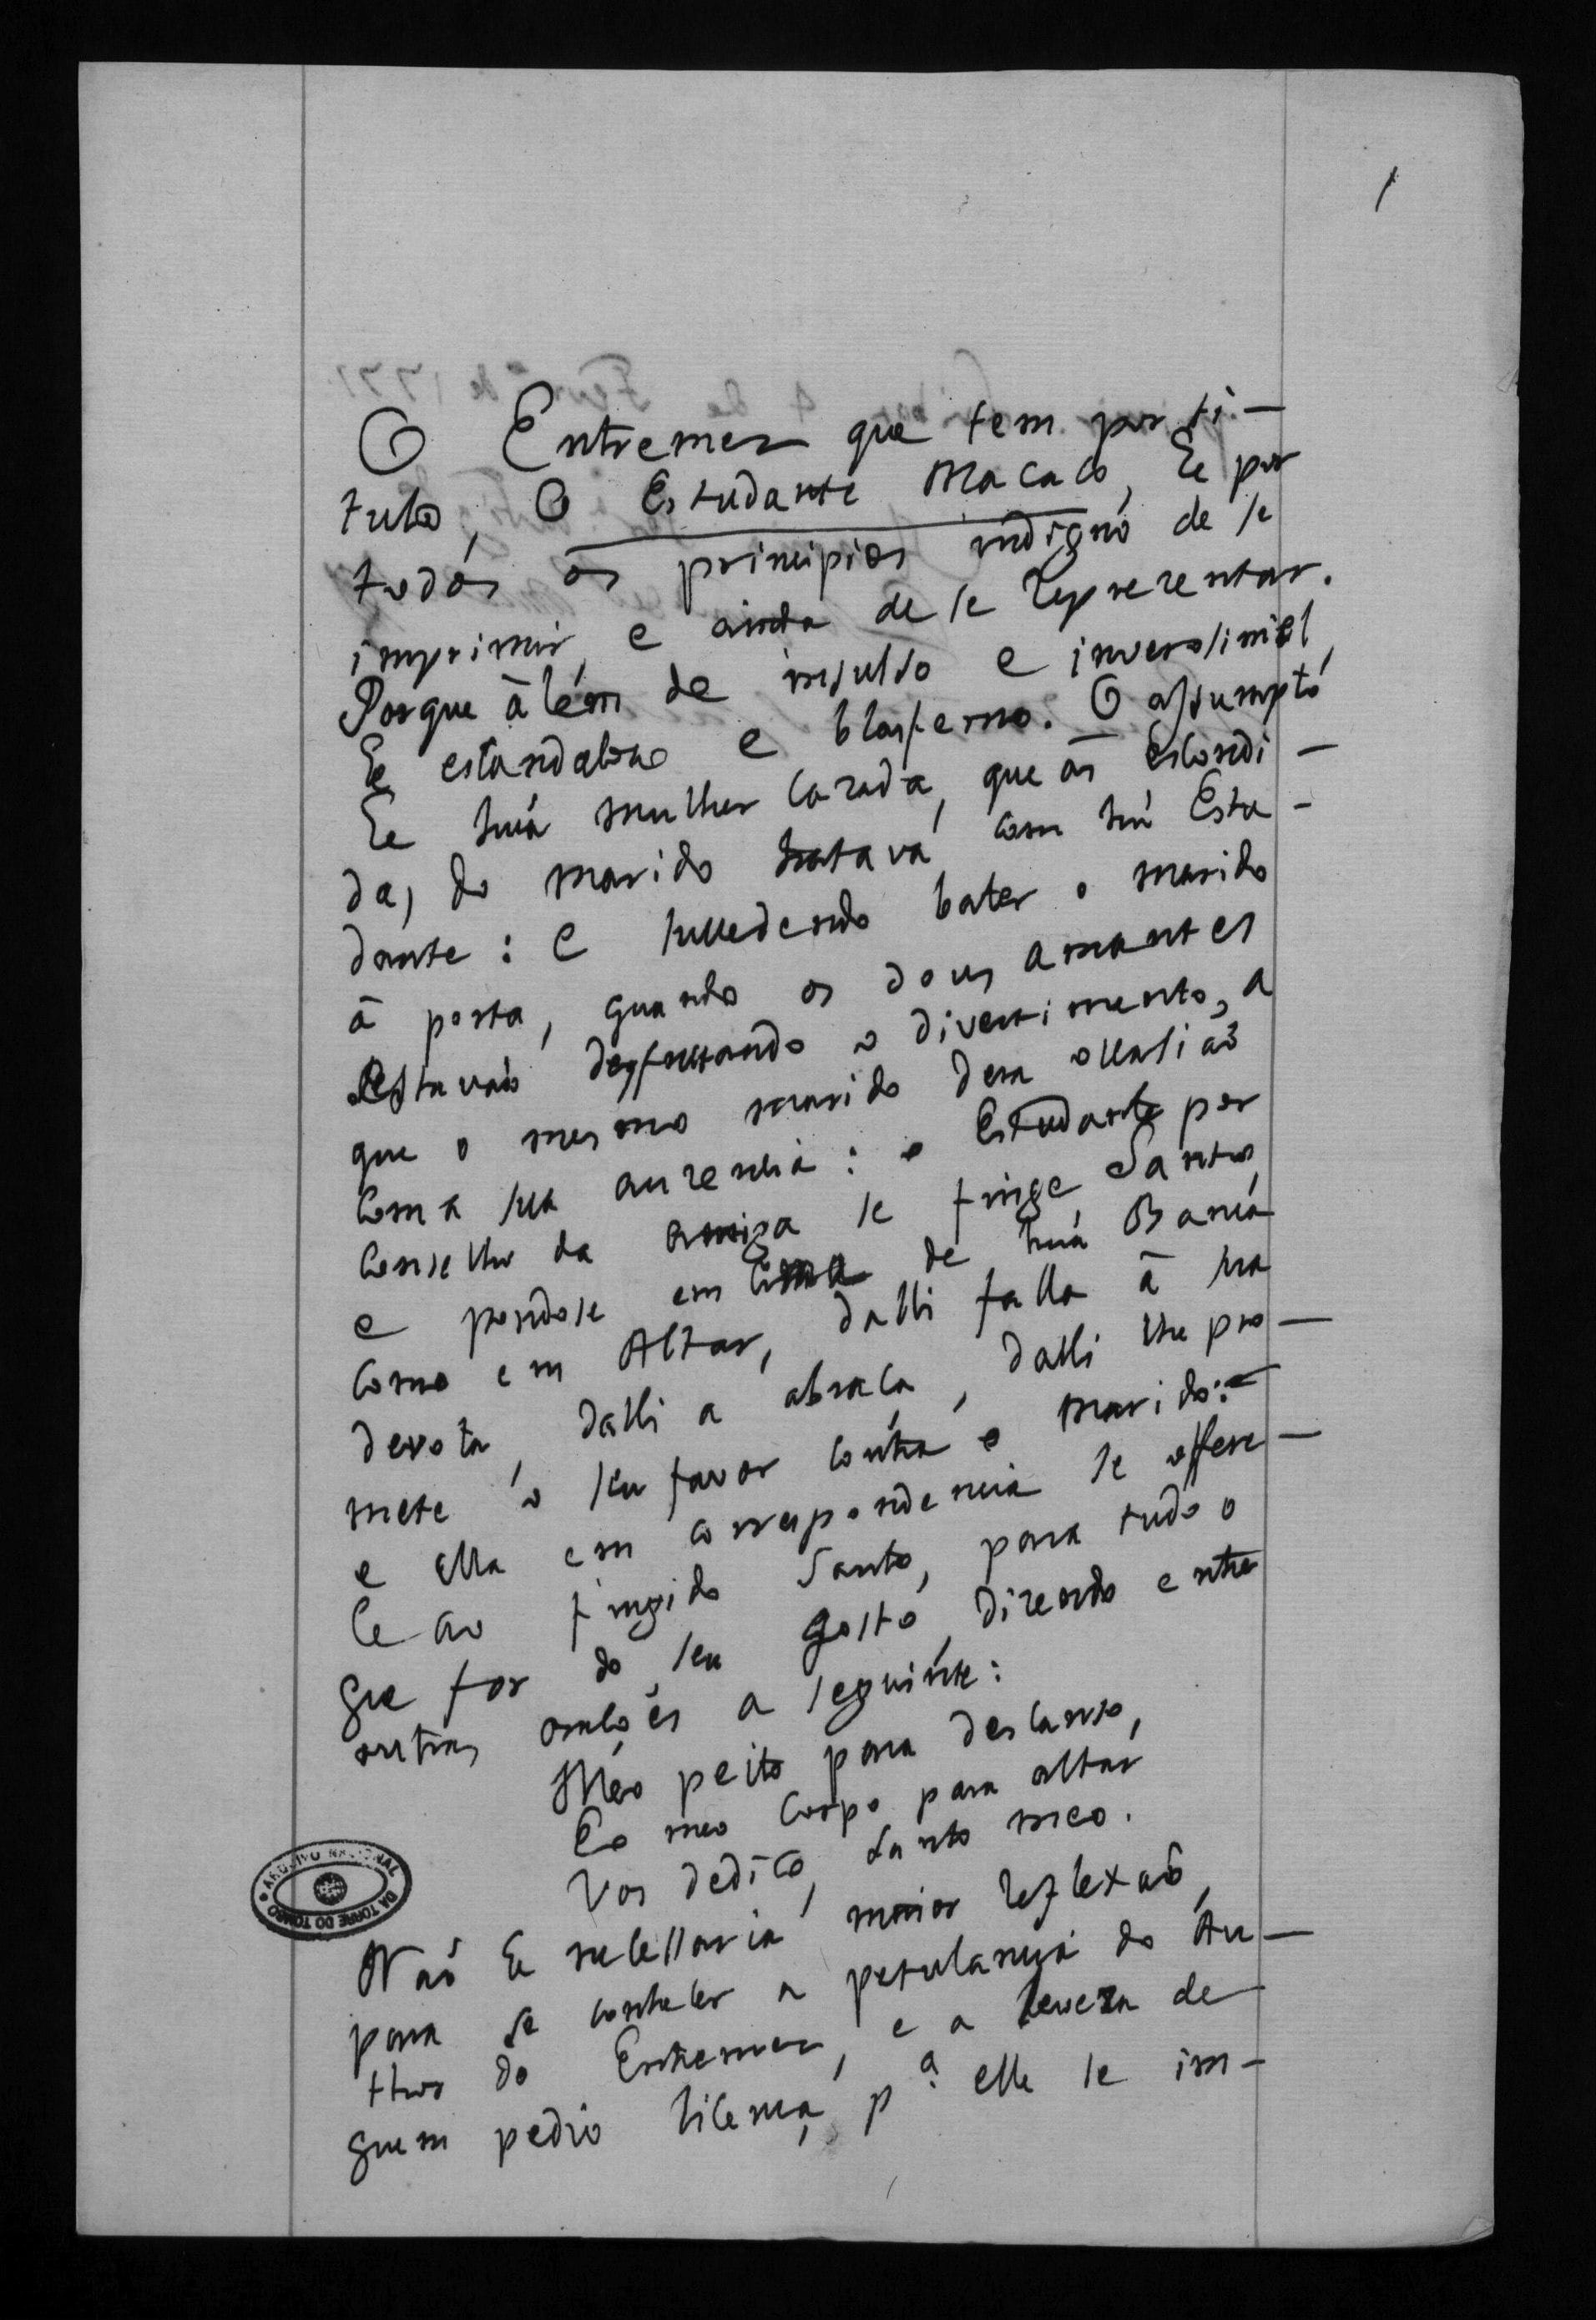 1
O Entremez que tem por ti-
tulo, O Estudante Macaco, he por
todos os principios indigno de se
imprimir, e ainda de se representar.
Porque àlém de insulso e inverosimel,
he escandaloso e blasfemo. O assumpto
he huã mulher cazada, que às escondi-
das do marido tratava com hũ Estu-
dante: e succedendo bater o marido
à porta, quando os dous amantes
estavaõ desfrutando o divertimento, a
que o mesmo marido dera occasiaõ
com a sua auzencia: o Estudante por
conselho da amiga se finge Santo,
e pondose em cima de huã Banca
como em Altar, dalli falla à sua
devota, dalli a abraça, dalli lhe pro-
mete o seu favor contra o marido:
e ella em correspondencia se offere-
ce ao fingido Santo, para tudo o
que for do seu gosto, dizendo entre
outras oraçoẽs a seguinte:
Meo peito para descanso,
E o meo corpo para altar
Vos dedico, santo meo.
Naõ he necessaria maior reflexaõ,
para se conhecer a petulancia do Au-
thor do Entremez, e a leveza de
quem pedio licença pª elle se im-
ARQUIVO NACIONAL DA TORRE DO TOMBO